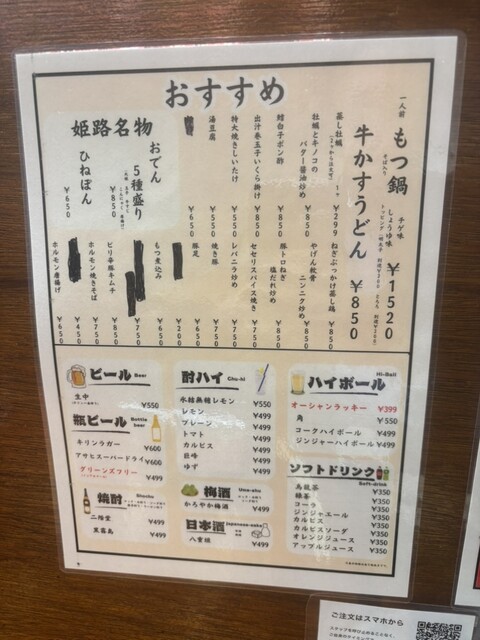 おすすめ
一人前
もつ鍋
チゲ味
しょうゆ味
¥1520
牛かすうどん ¥850
蒸し牡蠣
1ヶ ¥299
牡蠣とキノコの
バター醤油炒め ¥850
鱈白子ポン酢 ¥850
出汁巻玉子いくら掛け ¥850
特大焼きしいたけ ¥550
湯豆腐 ¥550
¥650
姫路名物
おでん
5種盛り
¥850
ひねぽん
¥650
ねぎぶっかけ蒸し鶏 ¥850
やげん軟骨
ニンニク炒め ¥850
豚トロねぎ
塩だれ炒め ¥850
セセリスパイス焼き ¥750
レバニラ炒め ¥750
焼き豚 ¥550
豚足 ¥650
¥200
もつ煮込み ¥650
ピリ辛豚キムチ ¥850
ホルモン焼きそば ¥750
¥450
ホルモン唐揚げ ¥650
ビール Beer
生中 ¥550
瓶ビール Bottle beer
キリンラガー ¥600
アサヒスーパードライ ¥600
グリーンズフリー ¥499
焼酎 Shochu
二階堂 ¥499
黒霧島 ¥499
酎ハイ Chu-hi
氷結無糖レモン ¥550
レモン ¥499
プレーン ¥499
トマト ¥499
カルピス ¥499
巨峰 ¥499
ゆず ¥499
梅酒 Ume-shu
かろやか梅酒 ¥499
日本酒 Japanese-sake
八重垣 ¥499
ハイボール Hi-Ball
オーシャンラッキー ¥399
角 ¥550
コークハイボール ¥499
ジンジャーハイボール ¥499
ソフトドリンク Soft-drink
烏龍茶 ¥350
緑茶 ¥350
コーラ ¥350
ジンジャエール ¥350
カルピス ¥350
カルピスソーダ ¥350
オレンジジュース ¥350
アップルジュース ¥350
ご注文はスマホから